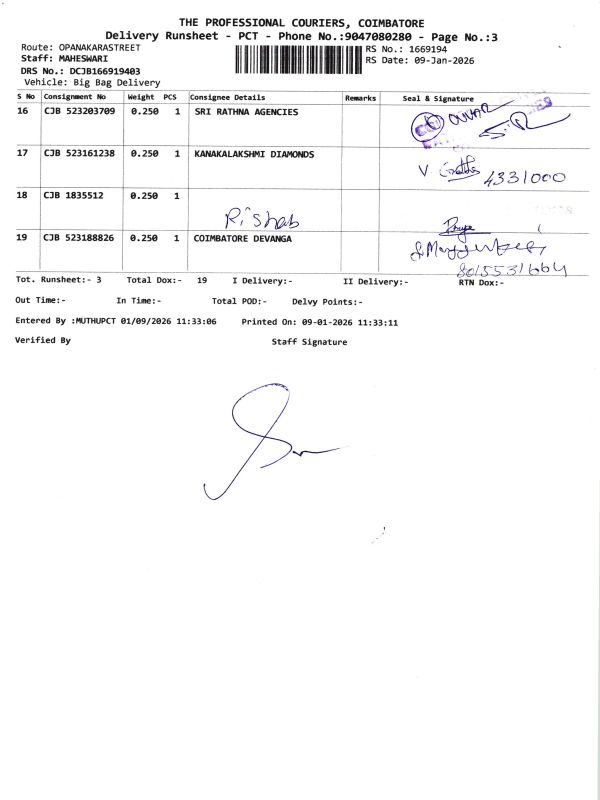 THE PROFESSIONAL COURIERS, COIMBATORE
Delivery Runsheet - PCT - Phone No.:9047080280 - Page No.:3
Route: OPANAKARASTREET
RS No.: 1669194
Staff: MAHESWARI
RS Date: 09-Jan-2026
DRS No.: DCJB166919403
Vehicle: Big Bag Delivery
S No Consignment No Weight PCS Consignee Details Remarks Seal & Signature
16 CJB 523203709 0.250 1 SRI RATHNA AGENCIES
17 CJB 523161238 0.250 1 KANAKALAKSHMI DIAMONDS
V 4331000
18 CJB 1835512 0.250 1
Rishab
19 CJB 523188826 0.250 1 COIMBATORE DEVANGA
8015531664
Tot. Runsheet:- 3 Total Dox:- 19 I Delivery:- II Delivery:- RTN Dox:-
Out Time:- In Time:- Total POD:- Delvy Points:-
Entered By :MUTHUPCT 01/09/2026 11:33:06 Printed On: 09-01-2026 11:33:11
Verified By Staff Signature